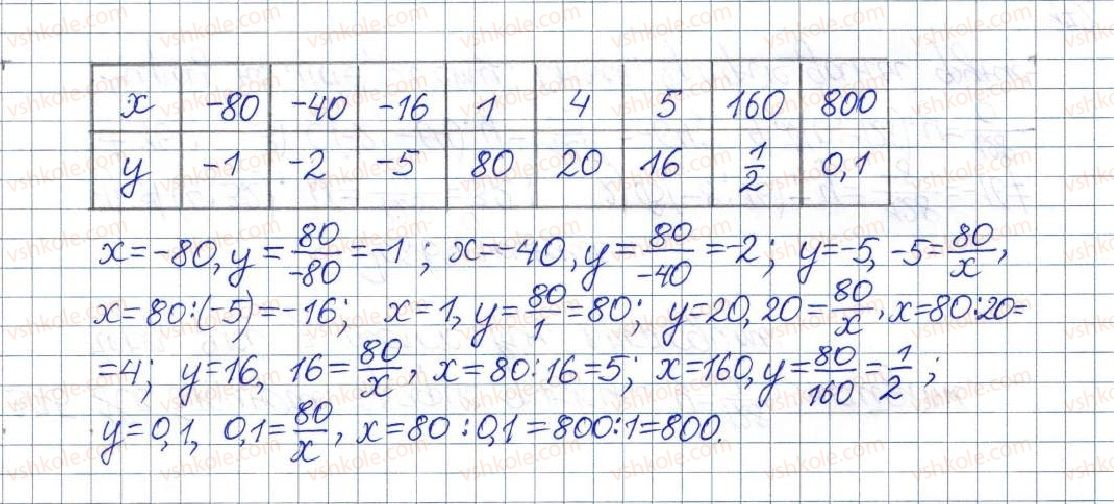 x -80 -40 -16 1 4 5 160 800
y -1 -2 -5 80 20 16 1/2 0,1
x=-80, y=80/-80=-1; x=-40, y=80/-40=-2; y=-5, -5=80/x,
x=80:(-5)=-16; x=1, y=80/1=80; y=20, 20=80/x, x=80:20=
=4; y=16, 16=80/x, x=80:16=5; x=160, y=80/160=1/2;
y=0,1, 0,1=80/x, x=80:0,1=800:1=800.
vshkole.com